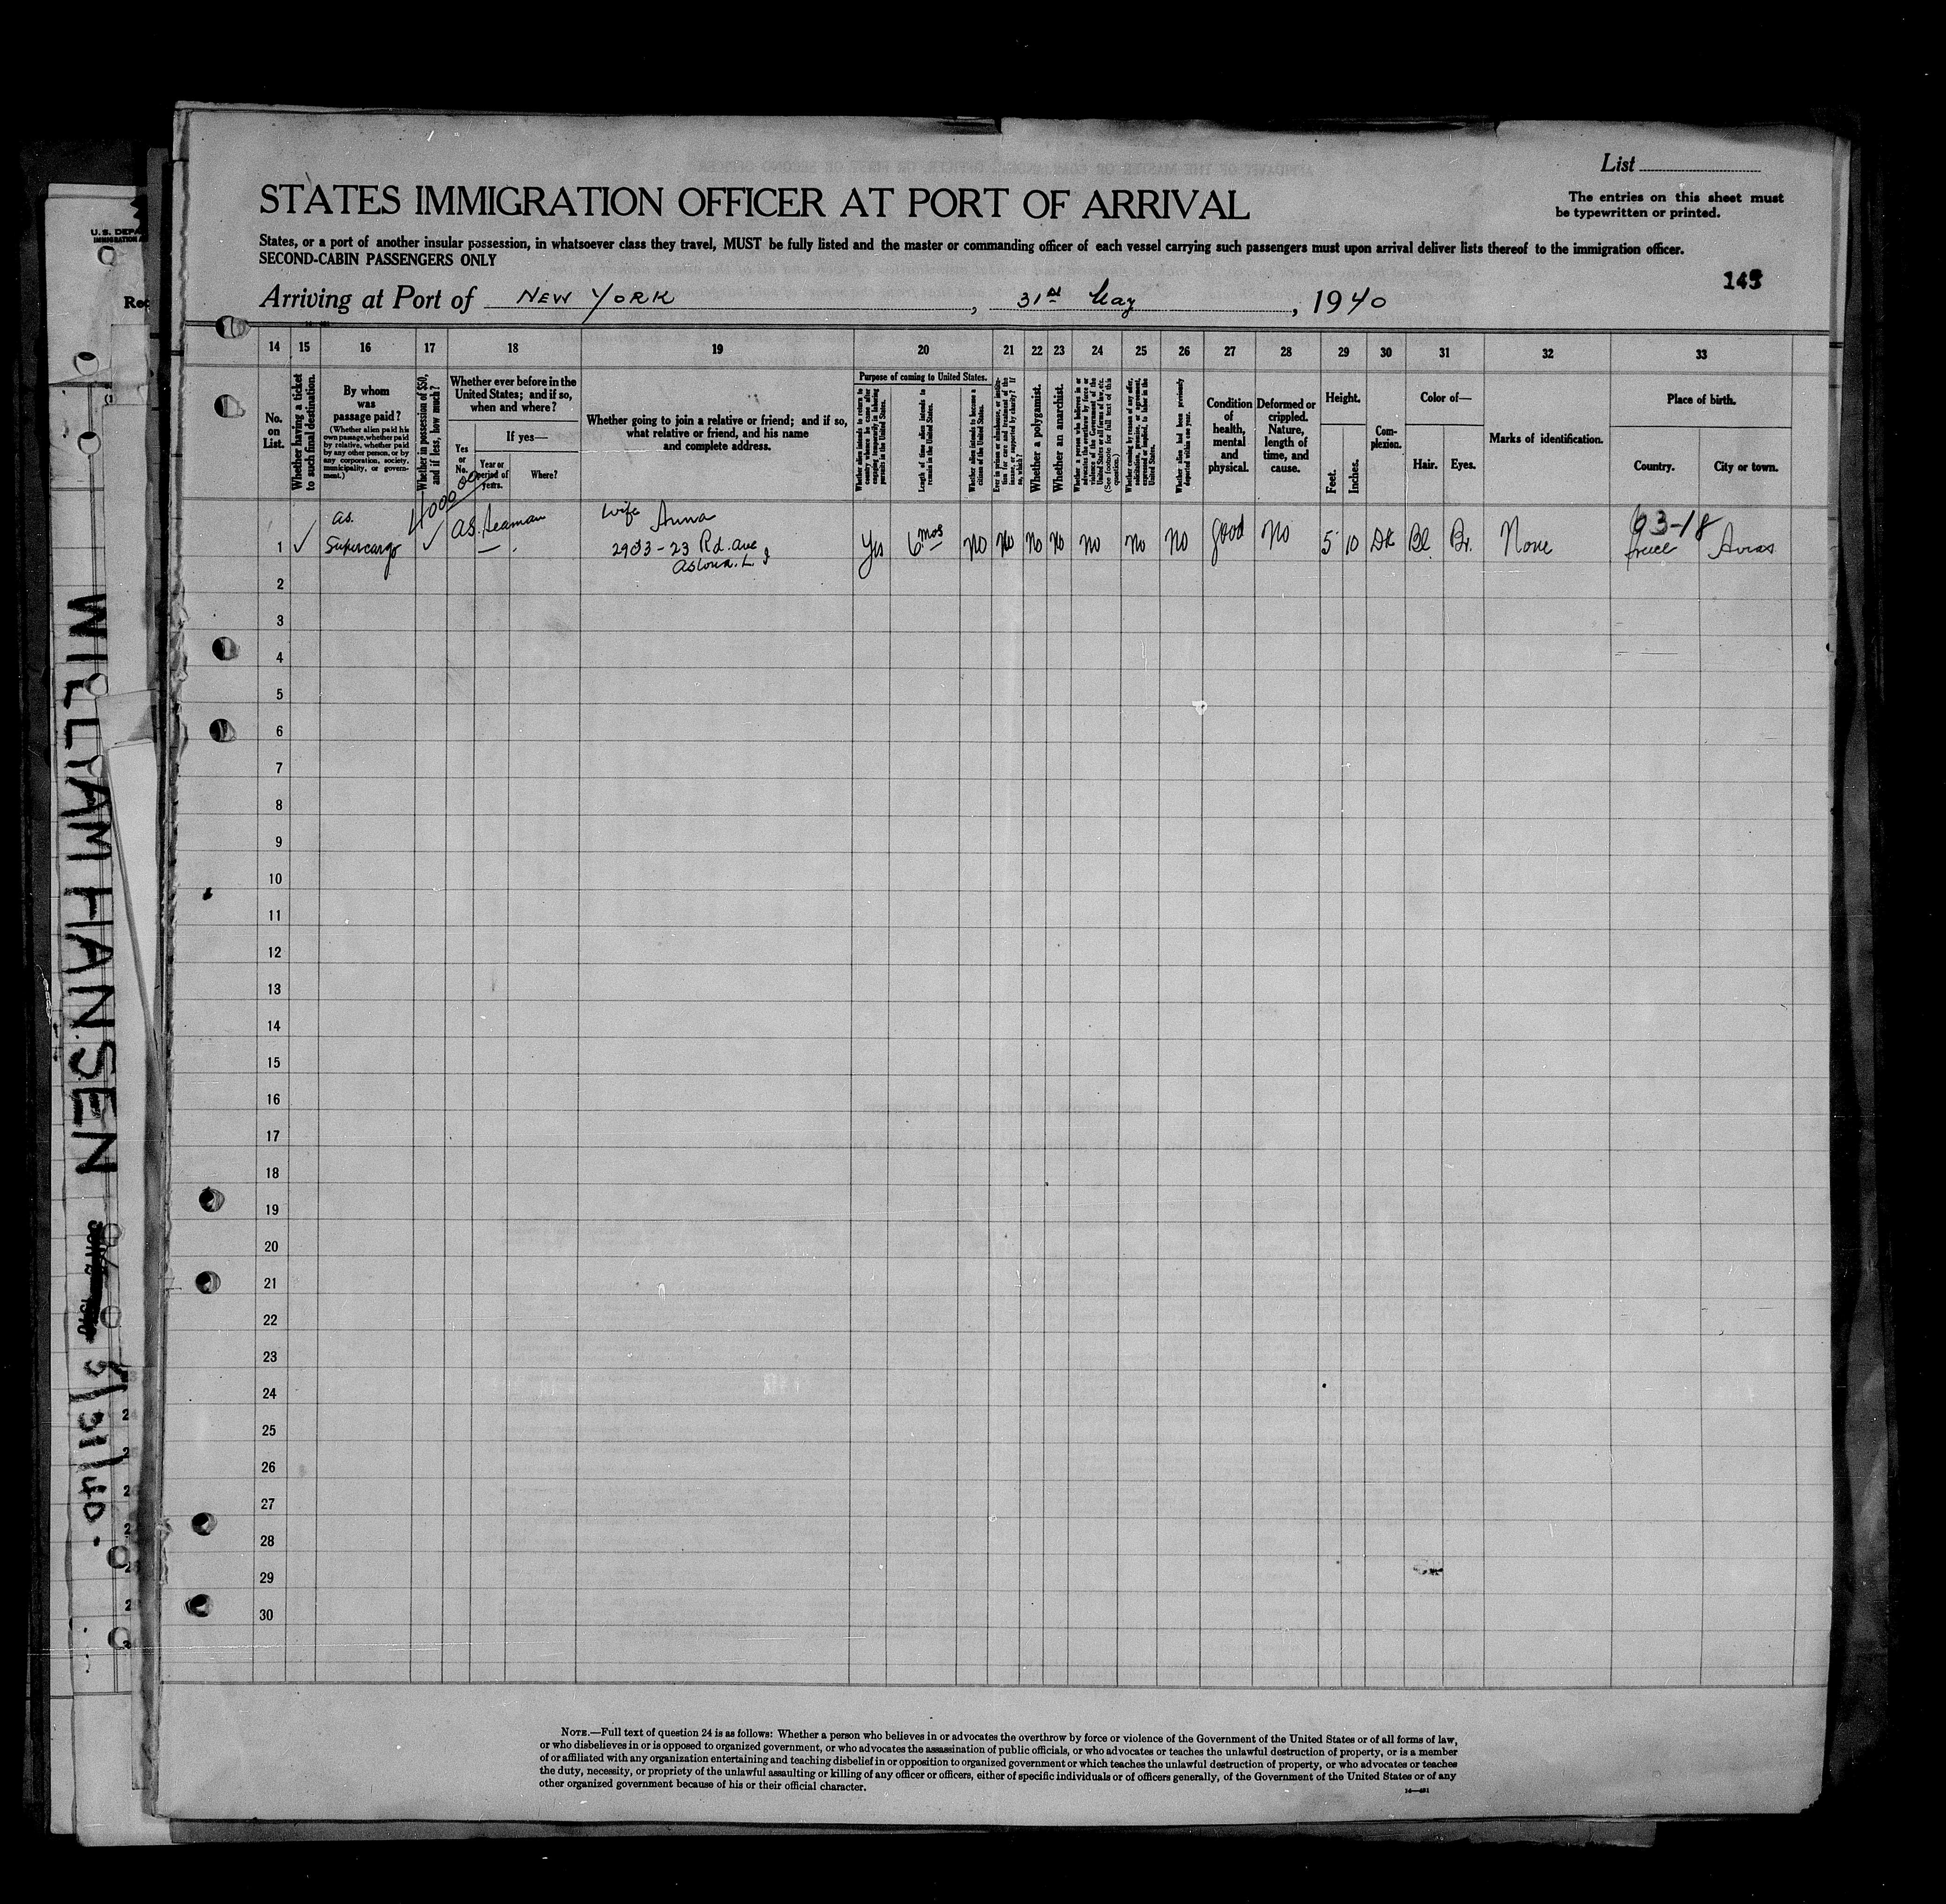 List
STATES IMMIGRATION OFFICER AT PORT OF ARRIVAL
The entries on this sheet must
be typewritten or printed.
States, or a port of another insular possession, in whatsoever class they travel, MUST be fully listed and the master or commanding officer of each vessel carrying such passengers must upon arrival deliver lists thereof to the immigration officer.
SECOND-CABIN PASSENGERS ONLY
Arriving at Port of NEW YORK, 31st May, 1940
14 15 16 17 18 19 20 21 22 23 24 25 26 27 28 29 30 31 32 33
No.
on
List.
Whether having a ticket
to such final destination.
By whom
was
passage paid?
(Whether alien paid his
own passage, whether paid
by relative, whether paid
by any other person, or by
any corporation, society,
municipality, or govern-
ment.)
Whether in possession of $50,
and if less, how much?
Whether ever before in the
United States; and if so,
when and where?
Yes
or
No.
If yes—
Year or
period of
years.
Where?
Whether going to join a relative or friend; and if so,
what relative or friend, and his name
and complete address.
Purpose of coming to United States.
Whether alien intends to return to
country whence he came after
engaging temporarily in laboring
pursuits in the United States.
Length of time alien intends to
remain in the United States.
Whether alien intends to become a
citizen of the United States.
Ever in prison or almshouse, or institu-
tion for care and treatment of the
insane, or supported by charity? If
so, which?
Whether a polygamist.
Whether an anarchist.
Whether a person who believes in or
advocates the overthrow by force or
violence of the Government of the
United States or all forms of law, etc.
(See footnote for full text of this
question.)
Whether coming by reason of any offer,
solicitation, promise, or agreement,
expressed or implied, to labor in the
United States.
Whether alien had been previously
deported within one year.
Condition
of
health,
mental
and
physical.
Deformed or
crippled.
Nature,
length of
time, and
cause.
Height.
Feet.
Inches.
Com-
plexion.
Color of—
Hair.
Eyes.
Marks of identification.
Place of birth.
Country.
City or town.
as.
as. Seaman
wife Anna
63-18
1 ✓ Supercargo ✓ 23 Rd. ave Yes 6 mos no no no no no no no good no 5 10 Dk Bl. Br. None
2
3
4
5
6
7
8
9
10
11
12
13
14
15
16
17
18
19
20
21
22
23
24
25
26
27
28
29
30
NOTE.—Full text of question 24 is as follows: Whether a person who believes in or advocates the overthrow by force or violence of the Government of the United States or of all forms of law,
or who disbelieves in or is opposed to organized government, or who advocates the assassination of public officials, or who advocates or teaches the unlawful destruction of property, or is a member
of or affiliated with any organization entertaining and teaching disbelief in or opposition to organized government or which teaches the unlawful destruction of property, or who advocates or teaches
the duty, necessity, or propriety of the unlawful assaulting or killing of any officer or officers, either of specific individuals or of officers generally, of the Government of the United States or of any
other organized government because of his or their official character.
WILLIAM HANSEN
5/31/40.